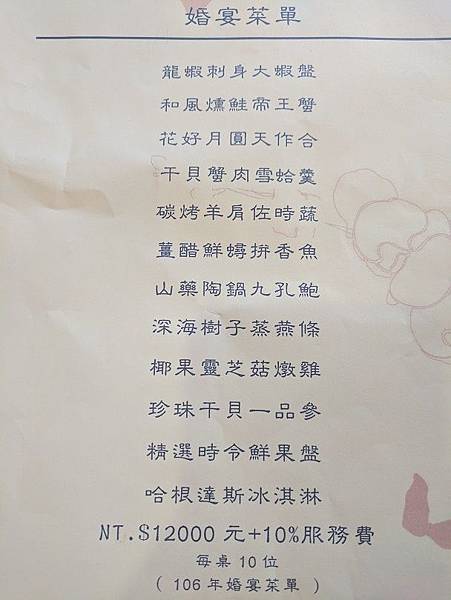 婚宴菜單
龍蝦刺身大蝦盤
和風燻鮭帝王蟹
花好月圓天作合
干貝蟹肉雪蛤羹
碳烤羊肩佐時蔬
薑醋鮮蟳拚香魚
山藥陶鍋九孔鮑
深海樹子蒸燕條
椰果靈芝菇燉雞
珍珠干貝一品參
精選時令鮮果盤
哈根達斯冰淇淋
NT.$12000 元+10%服務費
每桌 10 位
( 106 年婚宴菜單 )